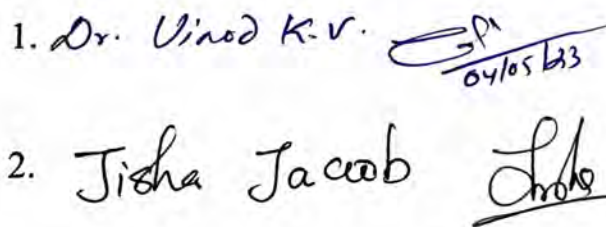 1. Dr. Vinod K.V.
04/05/23
2. Jisha Jacob